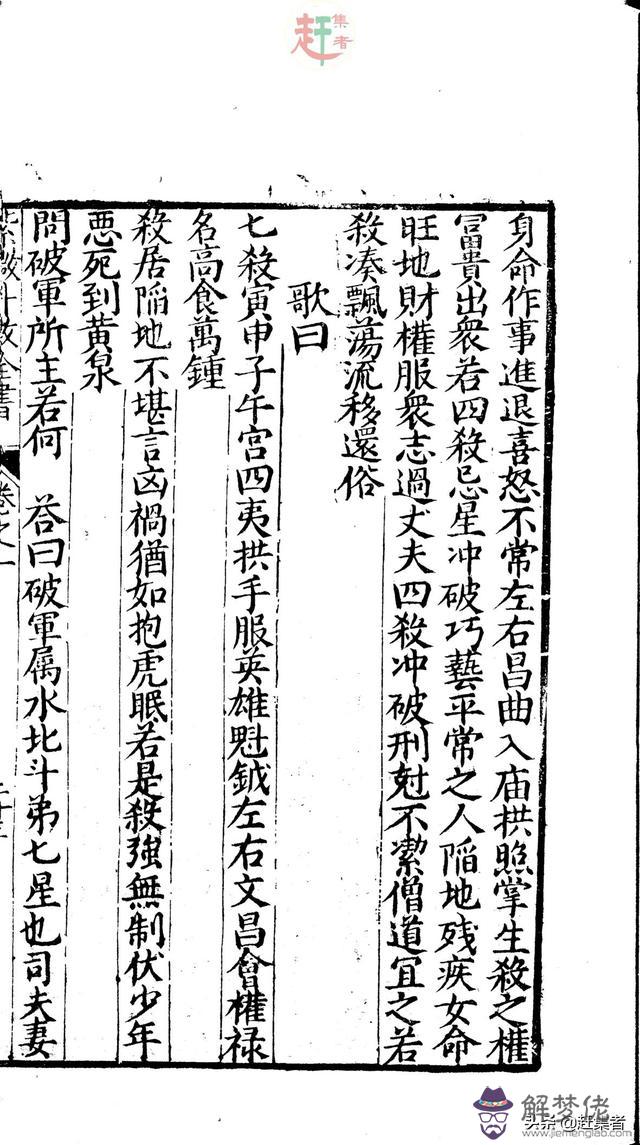 赶集者
身命作事進退喜怒不常左右昌曲入庙拱照掌生殺之權
冨貴出衆若四殺忌星冲破巧藝平常之人陷地残疾女命
旺地財權服衆志過丈夫四殺冲破刑尅不潔僧道宜之若
殺凑飄蕩流移還俗
歌曰
七殺寅申子午宮四夷拱手服英雄魁鉞左右文昌會權禄
名高食萬鍾
殺居陷地不堪言凶禍猶如抱虎眠若是殺強無制伏少年
悪死到黄泉
問破軍所主若何 荅曰破軍属水北斗弟七星也司夫妻
紫微斗数全書 卷之一
二十三
解梦佬
www.jiemenglao.com
头条@赶集者